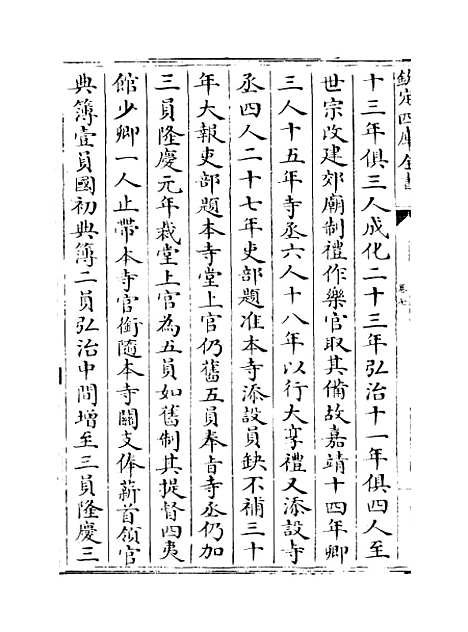 欽定四庫全書
卷七
十三年俱三人成化二十三年弘治十一年俱四人至
世宗改建郊廟制禮作樂官取其備故嘉靖十四年卿
三人十五年寺丞六人十八年以行大享禮又添設寺
丞四人二十七年吏部題准本寺添設員缺不補三十
年大報吏部題本寺堂上官仍舊五員奉旨寺丞仍加
三員隆慶元年裁堂上官為五員如舊制其提督四夷
館少卿一人止帶本寺官銜隨本寺關支俸薪首領官
典簿壹員國初典簿二員弘治中間增至三員隆慶三